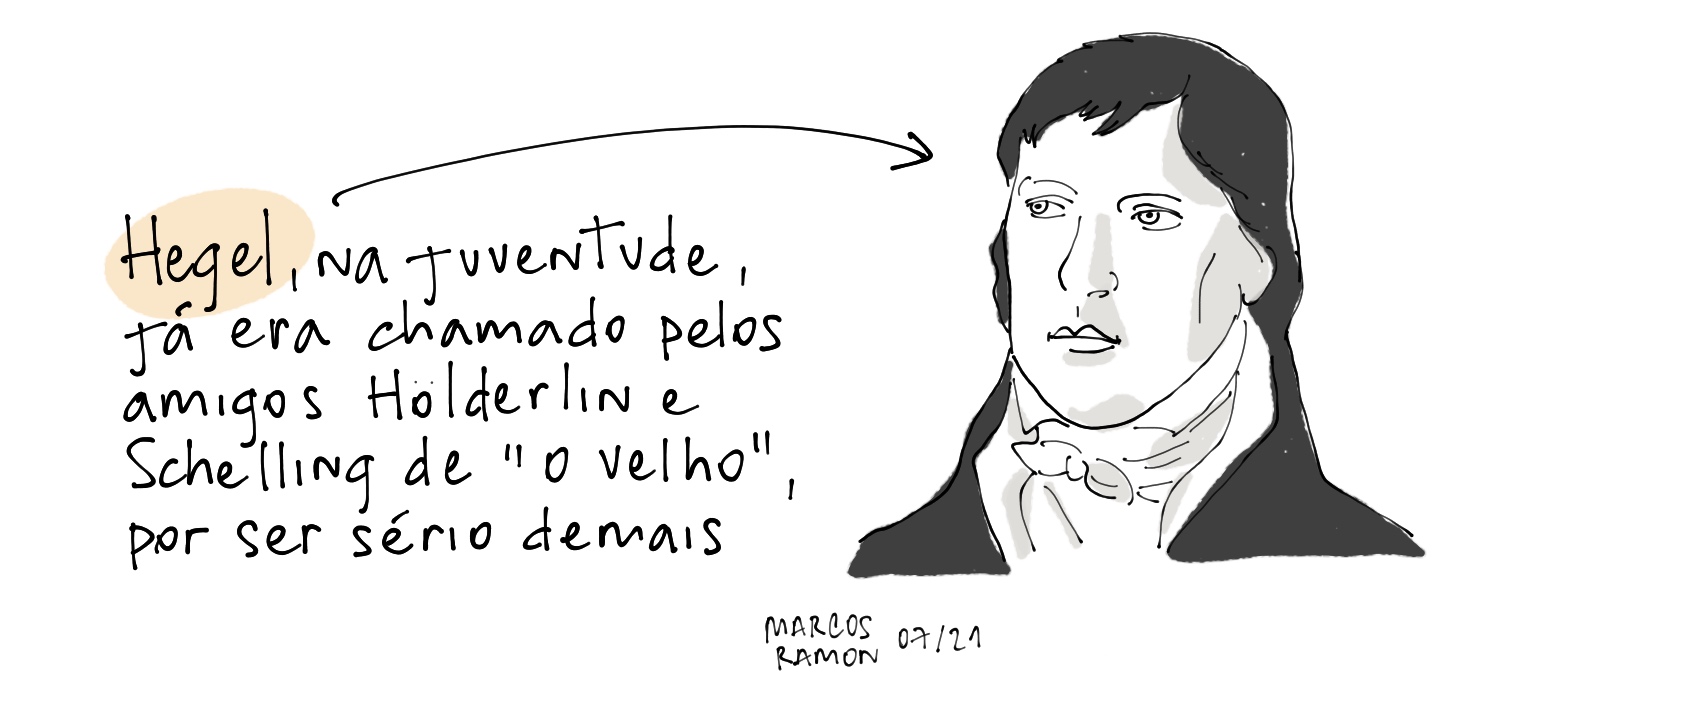 Hegel, na juventude,
já era chamado pelos
amigos Hölderlin e
Schelling de "o velho",
por ser sério demais
MARCOS
RAMON 07/21